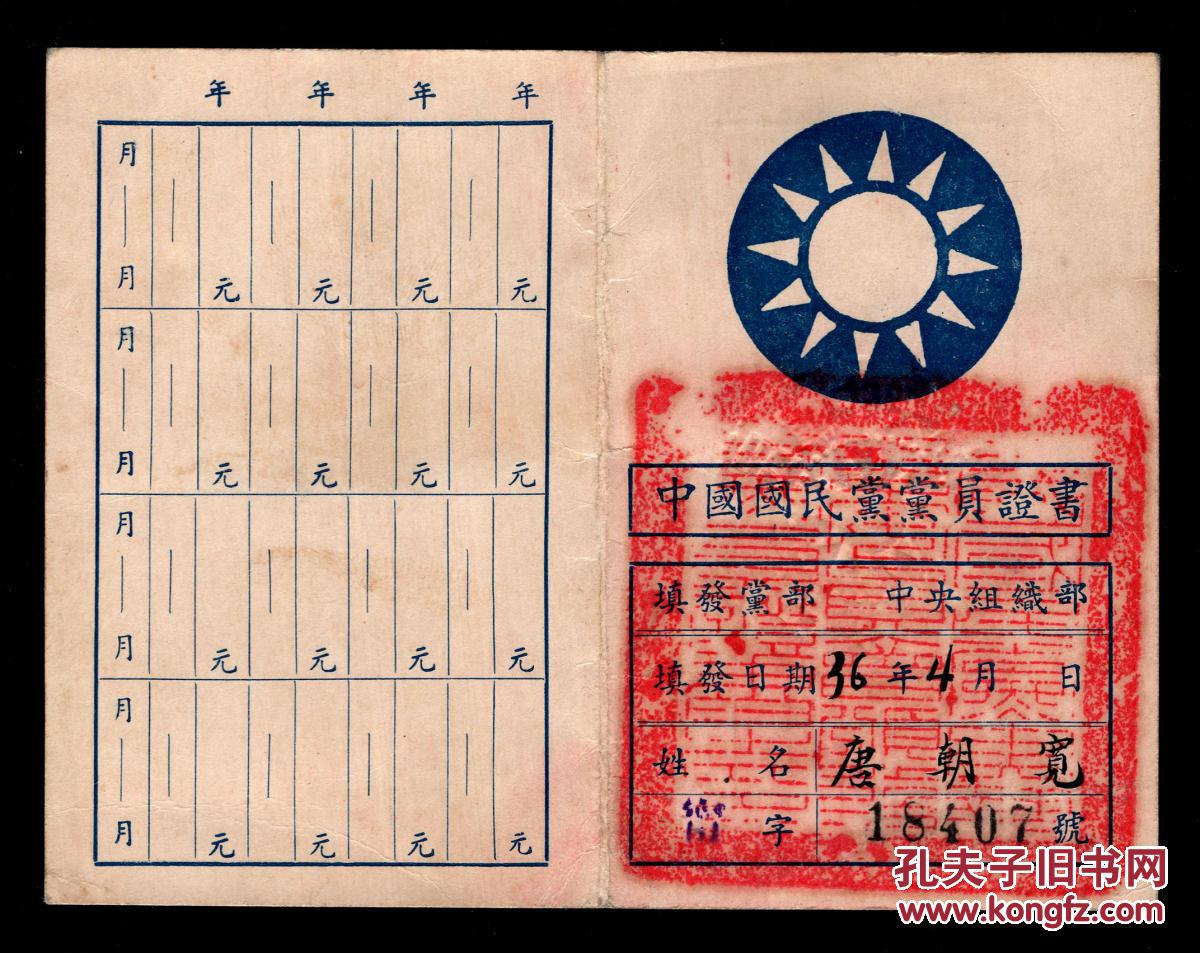 年 年 年 年
月 | | | |
月 元 元 元 元
月 | | | |
月 元 元 元 元
月 | | | |
月 元 元 元 元
月 | | | |
月 元 元 元 元
中國國民黨黨員證書
填發黨部 中央組織部
填發日期 36年4月 日
姓名 唐朝寬
字 18407 號
孔夫子旧书网
www.kongfz.com